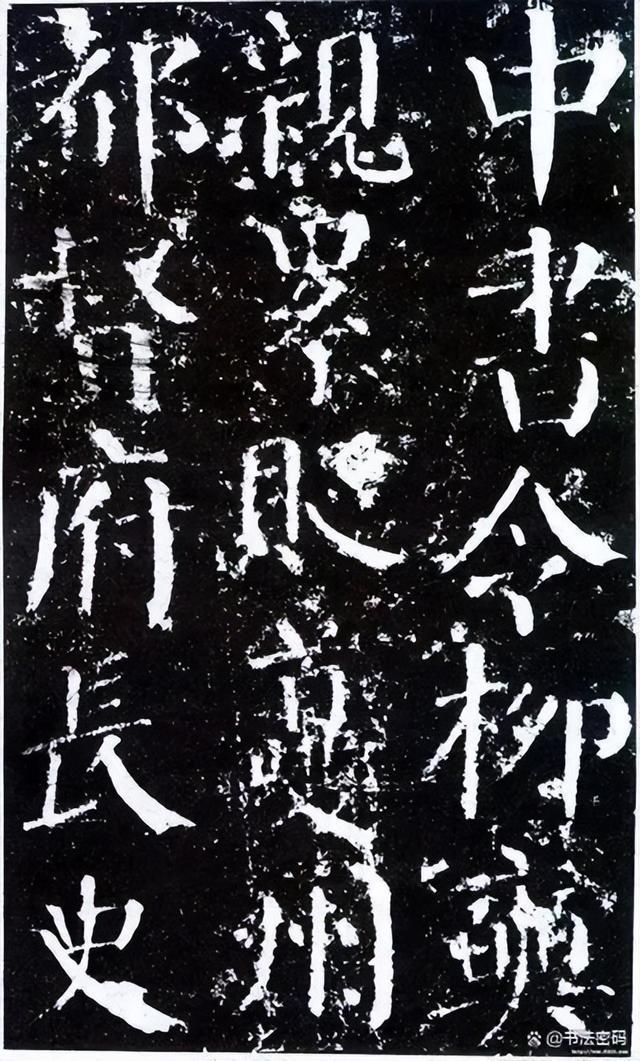 中書令柳奭
親累貶夔州
都督府長史
@书法密码